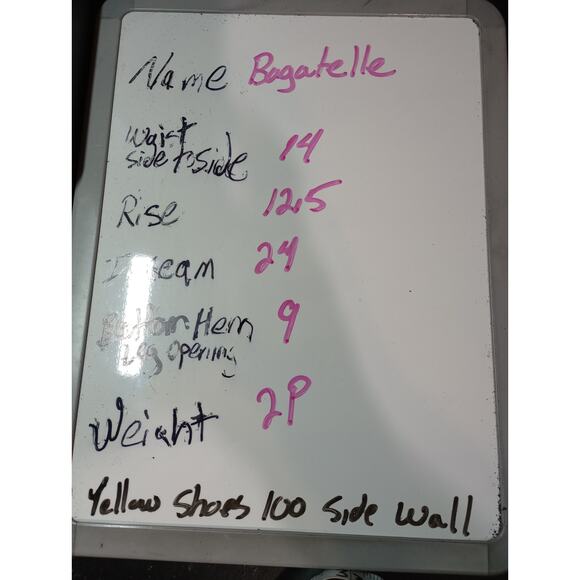 Name Bagatelle
Waist
side to side 14
Rise 12.5
Inseam 24
Bottom Hem 9
Leg opening
Weight 2P
Yellow Shoes 100 Side Wall